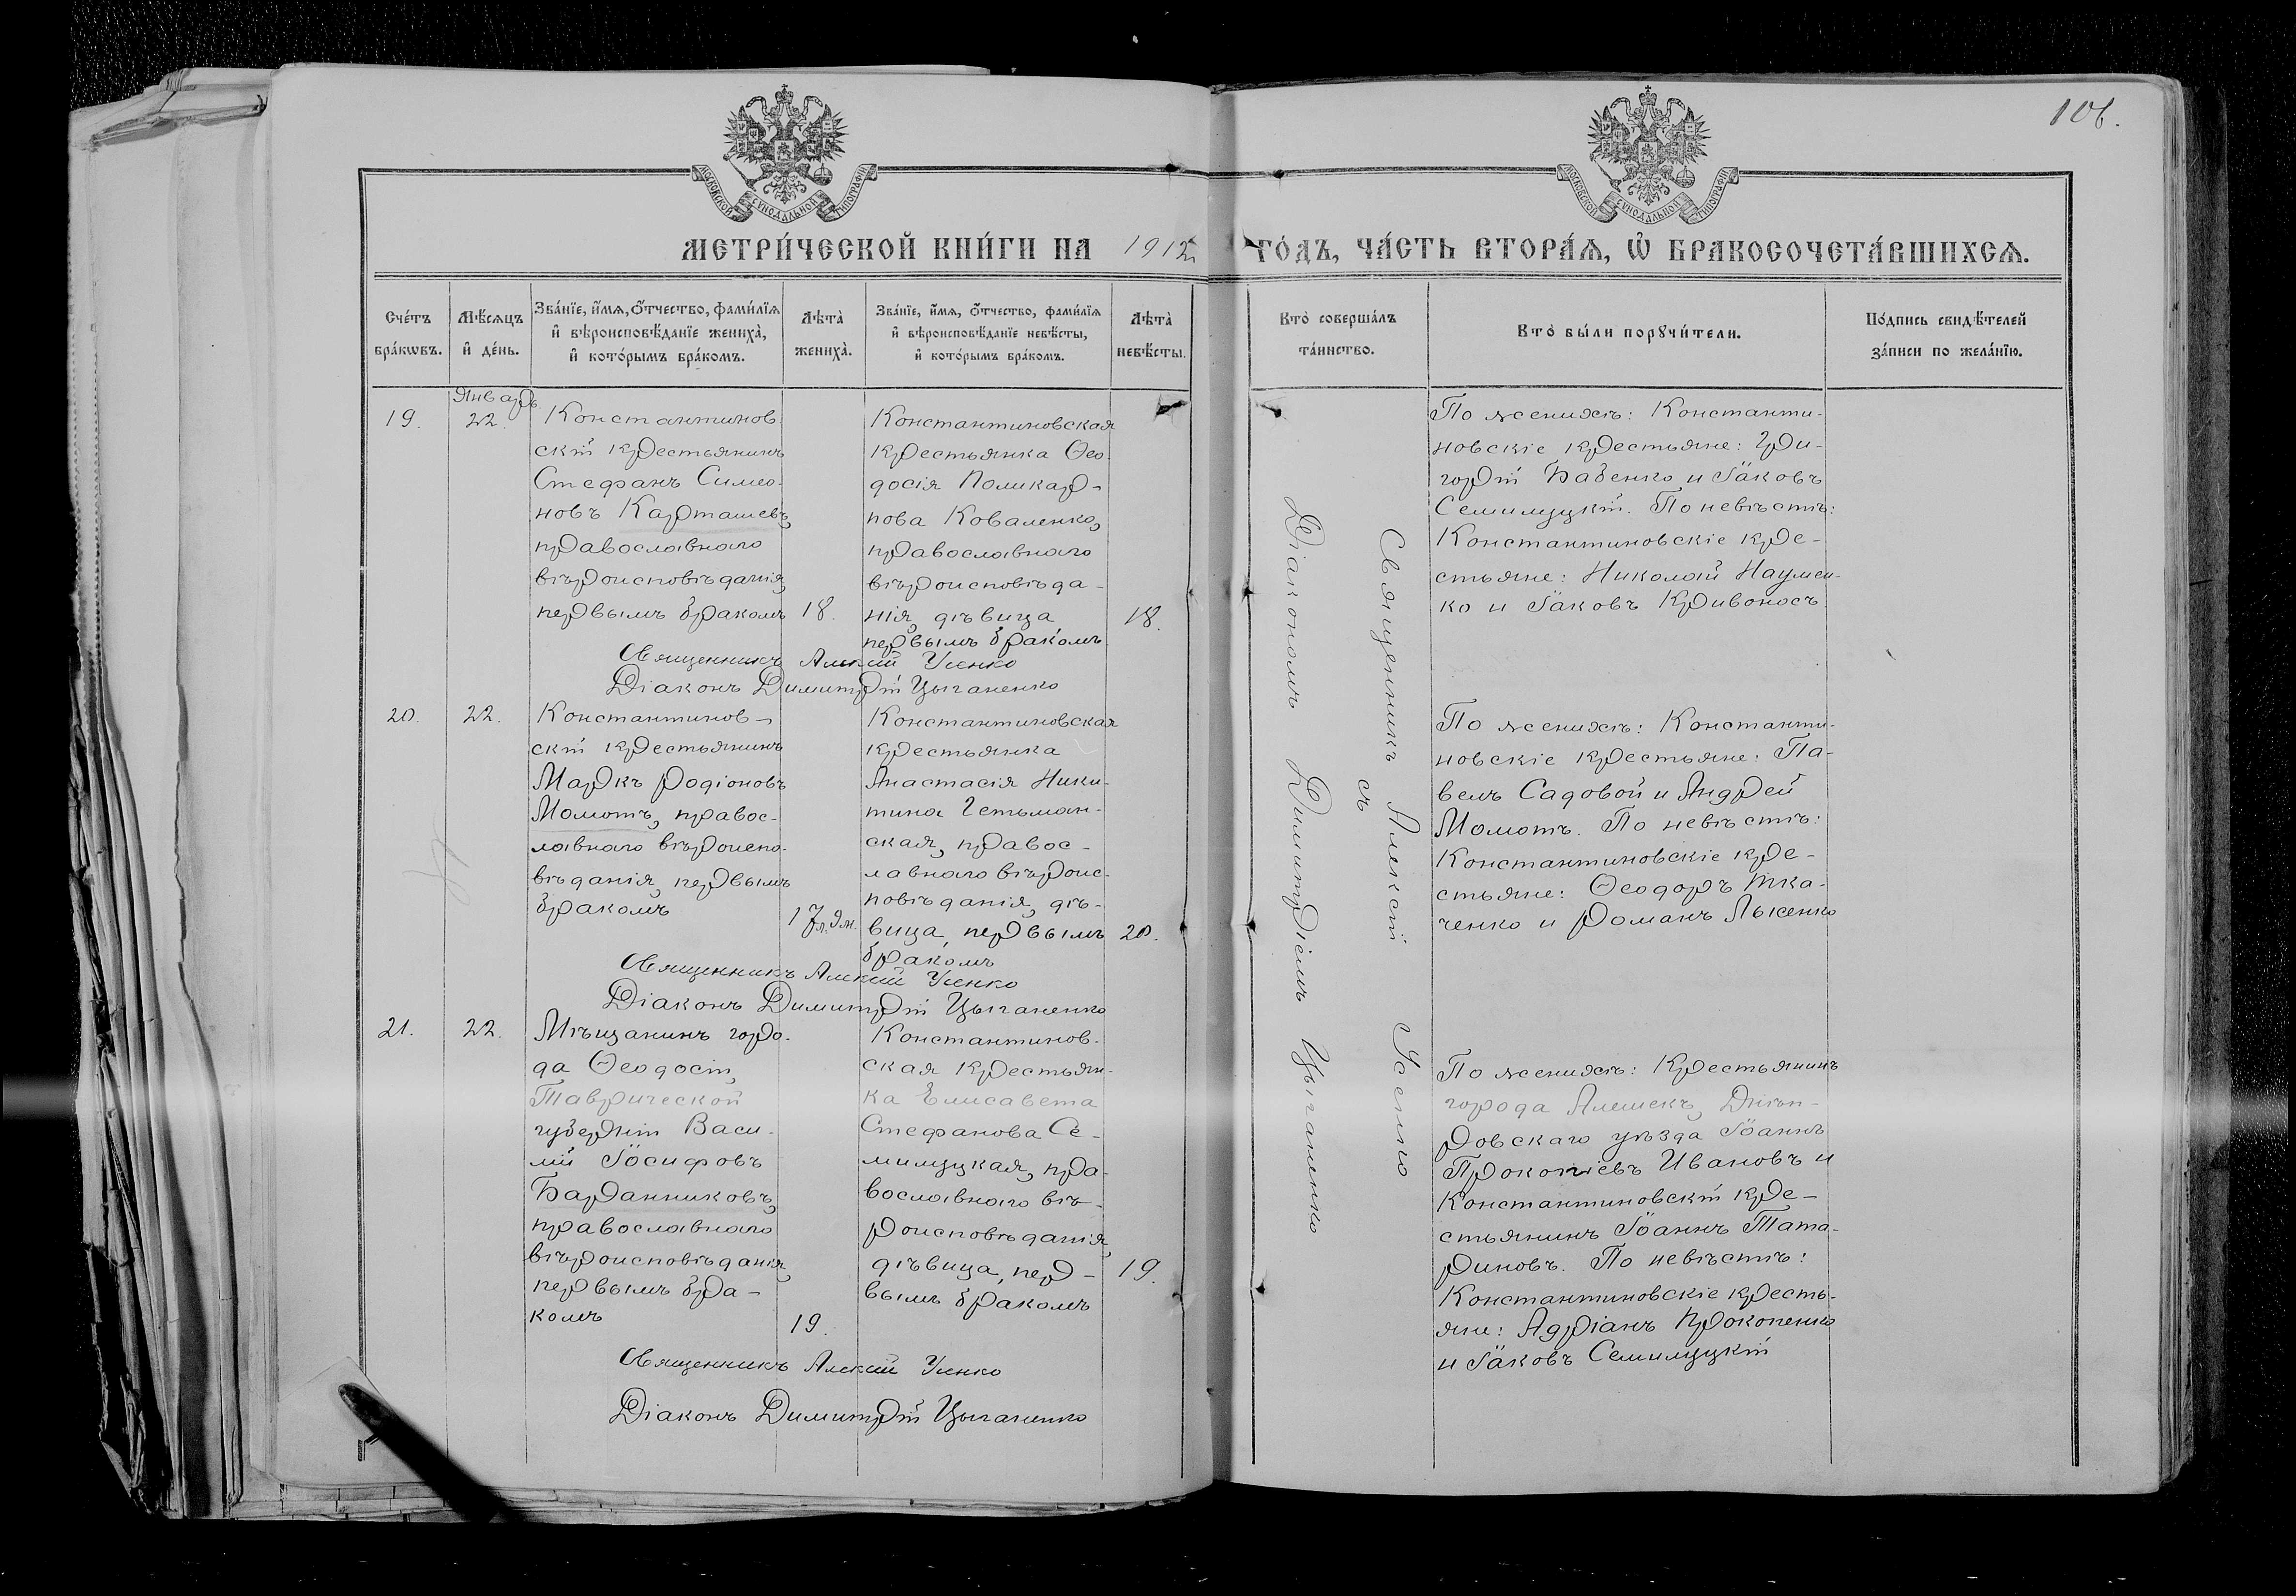 106.
МОСКОВСКОЙ СѴНОДАЛЬНОЙ ТИПОГРАФІИ
МОСКОВСКОЙ СѴНОДАЛЬНОЙ ТИПОГРАФІИ
МЕТРИ́ЧЕСКОЙ КНИ́ГИ НА 1912 ГО́ДЪ, ЧА́СТЬ ВТОРА́Ѧ, Ѡ҆ БРАКОСОЧЕТА́ВШИХСѦ.
Сче́тъ
бра́кѡвъ.
Мѣ́сѧцъ
и҆ де́нь.
Зва́нїе, и҆́мѧ, ѻ҆́тчество, фами́лїѧ
и҆ вѣроисповѣ́данїе жениха̀,
и҆ кото́рымъ бра́комъ.
Лѣта̀
жениха̀.
Зва́нїе, и҆́мѧ, ѻ҆́тчество, фами́лїѧ
и҆ вѣроисповѣ́данїе невѣ́сты,
и҆ кото́рымъ бра́комъ.
Лѣта̀
невѣ́сты.
Кто̀ соверша́лъ
та́инство.
Кто̀ бы́ли порꙋчи́тели.
По́дпись свидѣ́телей
за́писи по жела́нїю.
Январь
19.
22.
Константинов-
скій крестьянинъ
Стефанъ Симео-
новъ Карташевъ,
православнаго
вѣроисповѣданія,
первымъ бракомъ
18.
Константиновская
крестьянка Ѳео-
досія Поликар-
пова Коваленко,
православнаго
вѣроисповѣда-
нія, дѣвица
первымъ бракомъ
18.
Священникъ Алексій Усенко
Діаконъ Димитрій Цыганенко
По женихѣ: Константи-
новскіе крестьяне: Гри-
горій Бабенко и Іаковъ
Семилуцкій. По невѣстѣ:
Константиновскіе кре-
стьяне: Николай Наумен-
ко и Іаковъ Кривоносъ
20.
22.
Константинов-
скій крестьянинъ
Маркъ Родіоновъ
Момотъ, правос-
лавнаго вѣроиспо-
вѣданія, первымъ
бракомъ
17 л.
Константиновская
крестьянка
Анастасія Ники-
тина Гетьман-
ская, правос-
лавнаго вѣроис-
повѣданія, дѣ-
вица, первымъ
бракомъ
20.
Священникъ Алексій Усенко
Діаконъ Димитрій Цыганенко
По женихѣ: Константи-
новскіе крестьяне: Па-
велъ Садовой и Андрей
Момотъ. По невѣстѣ:
Константиновскіе кре-
стьяне: Ѳеодоръ Тка-
ченко и Романъ Лысенко
21.
22.
Мѣщанинъ горо-
да Ѳеодосіи,
Таврической
губерніи Васи-
лій Іосифовъ
Барданниковъ,
православнаго
вѣроисповѣданія,
первымъ бра-
комъ
19.
Константинов-
ская крестьян-
ка Елисавета
Стефанова Се-
милуцкая, пра-
вославнаго вѣ-
роисповѣданія,
дѣвица, пер-
вымъ бракомъ
19.
Священникъ Алексій Усенко
Діаконъ Димитрій Цыганенко
По женихѣ: Крестьянинъ
города Алешекъ, Днѣп-
ровскаго уѣзда Іоаннъ
Прокопіевъ Ивановъ и
Константиновскій кре-
стьянинъ Іоаннъ Тата-
риновъ. По невѣстѣ:
Константиновскіе кресть-
яне: Адріанъ Прокопенко
и Іаковъ Семилуцкій
Священникъ Алексій Усенко
съ
Діакономъ Димитріемъ Цыганенко